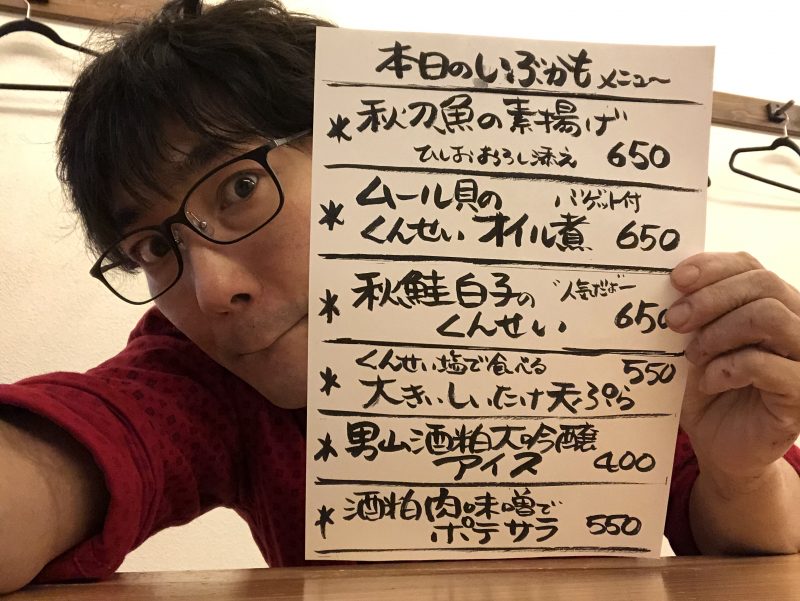 本日のいぶかもメニュー
*秋刀魚の素揚げ
ひしおおろし添え 650
*ムール貝の バゲット付
くんせいオイル煮 650
*秋鮭白子の "人気だよー
くんせい 650
*くんせい塩で食べる 550
大きいしいたけ天ぷら
*男山酒粕大吟醸
アイス 400
*酒粕肉味噌で
ポテサラ 550